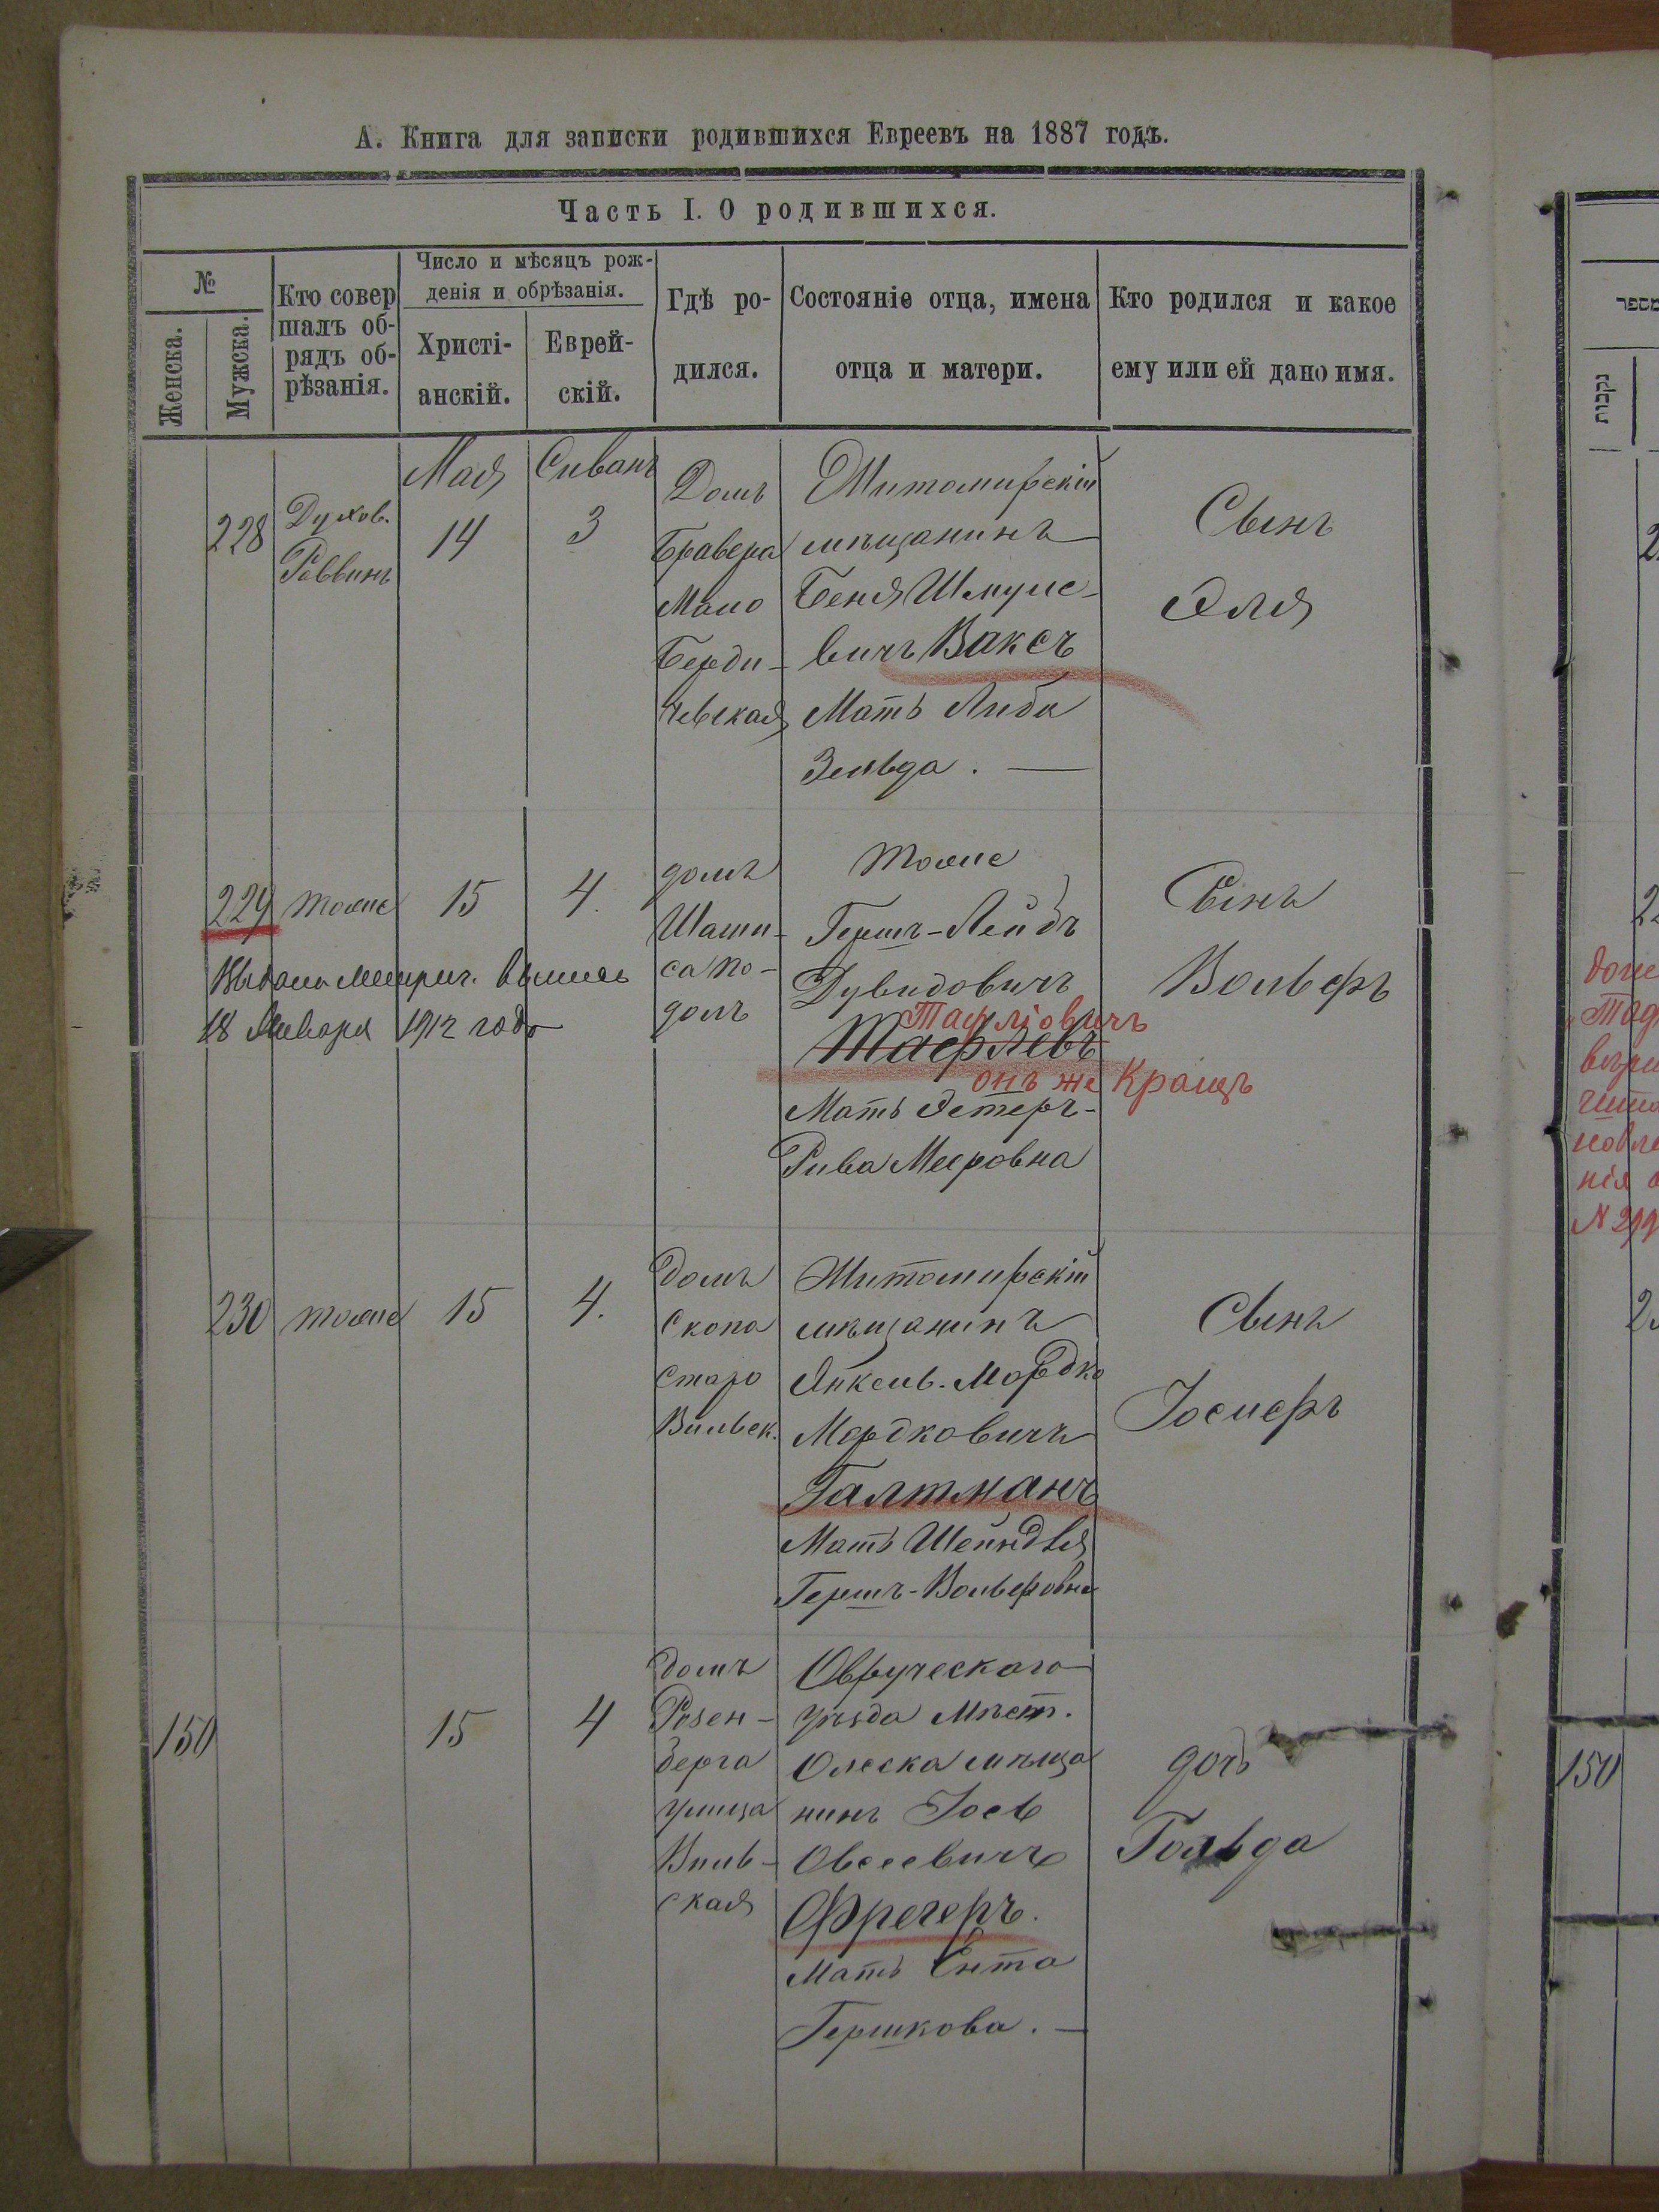 А. Книга для записки родившихся Евреевъ на 1887 годъ.
Часть I. О родившихся.
№
Женска.
Мужска.
Кто совер
шалъ об-
рядъ об-
рѣзанія.
Число и мѣсяцъ рож-
денія и обрѣзанія.
Христі-
анскій.
Еврей-
скій.
Гдѣ ро-
дился.
Состояніе отца, имена
отца и матери.
Кто родился и какое
ему или ей дано имя.
228
Духов.
Раввинъ
Мая
14
Сиванъ
3
Домъ
Бравера
Мало
Берди-
чевская
Житомирскій
мѣщанинъ
Беня Шмуле-
вичъ Ваксъ
Мать Либа
Зельда. —
Сынъ
Эля
229
тоже
15
4.
домъ
Шами-
са По-
долъ
тоже
Гершъ-Лейбъ
Дувидовичъ
Тафліовичъ
Тафлевъ
онъ же Кращъ
Мать Эстеръ-
Рива Меeровна
Сынъ
Вольфъ
18 Января 1912 года
230
тоже
15
4.
Домъ
Скопа
Старо
Вильск.
Житомирскій
мѣщанинъ
Янкель-Мордко
Мордковичъ
Галтманъ
Мать Шейндля
Гершъ-Вольфовна
Сынъ
Іосифъ
150
15
4
домъ
Розен-
берга
улица
Виль-
ская
Овручскаго
уѣзда Мѣст.
Олеска мѣща
нинъ Іось
Овсеевичъ
Фрегеръ.
Мать Ента
Гершкова. —
дочь
Гольда
מספר
נקבות
150